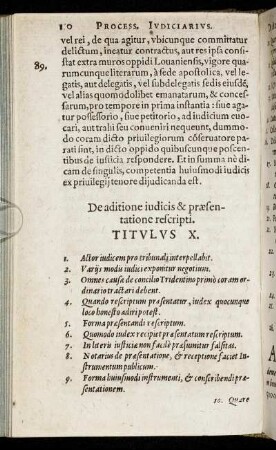 10 PROCESS. IVDICIARIVS.
vel rei, de qua agitur, vbicunque committatur
delictum, ineatur contractus, aut res ipsa consi-
stat extra muros oppidi Louaniensis, vigore qua-
rumcunque literarum, à sede apostolica, vel le-
gatis, aut delegatis, vel subdelegatis sedis eiusdē,
vel alias quomodolibet emanatarum, & conces-
sarum, pro tempore in prima instantia: siue agatur
possessorio, siue petitorio, ad iudicium euo-
cari, aut trahi seu conueniri nequeunt, dummo-
do coram dicto priuilegiorum cōseruatore para-
ti sint, in dicto oppido quibuscunque poscen-
tibus de iusticia respondere. Et in summa nè di-
89. cam de singulis, competentia huiusmodi iudicis
ex priuilegij tenore dijudicanda est.
De aditione iudicis & præsen-
tatione rescripti.
TITVLVS X.
1. Actor iudicem pro tribunali interpellabit.
2. Varijs modis iudici exponitur negotium.
3. Omnes causæ de concilio Tridentino primò coram or-
dinario tractari debent.
4. Quando rescriptum præsentatur, iudex quocunque
loco honesto adiri potest.
5. Forma præsentandi rescriptum.
6. Quomodo iudex recipiet præsentatum rescriptum.
7. In literis iusticiæ non facilè præsumitur falsitas.
8. Notarius de præsentatione, & receptione faciet In-
strumentum publicum.
9. Forma huiusmodi instrumenti, & conscribendi præ-
sentationem.
10. Quare